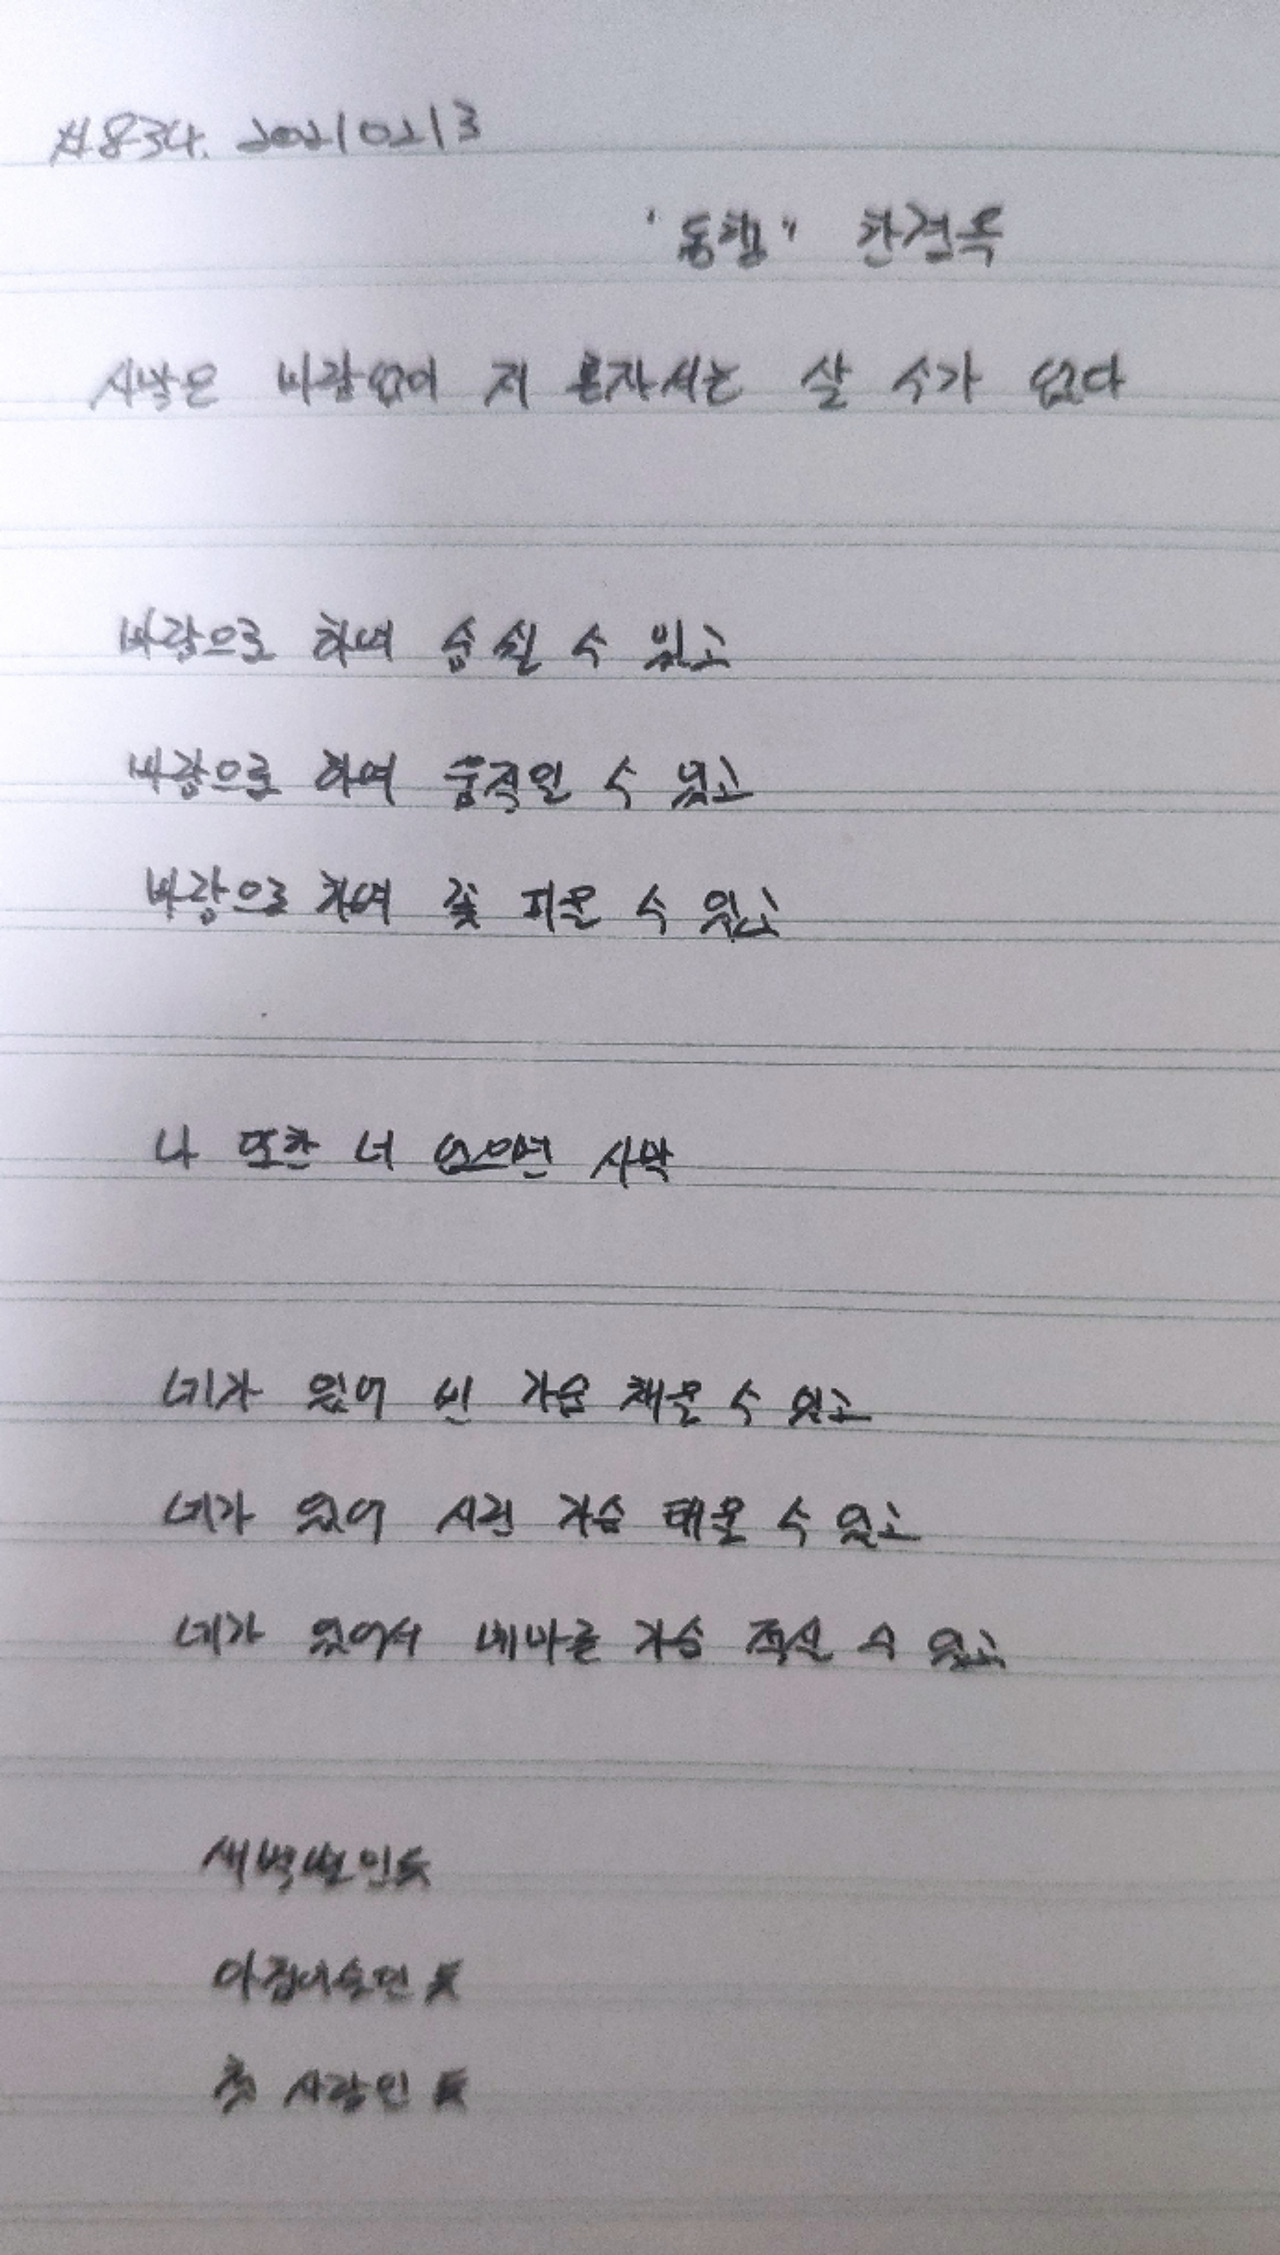 #834. 20210213
"동행" 한경옥
사막은 바람없이 저 혼자서는 살 수가 없다
바람으로 하여 숨 쉴 수 있고
바람으로 하여 움직일 수 있고
바람으로 하여 꽃 피울 수 있고
나 또한 너 없으면 사막
네가 있어 빈 가슴 채울 수 있고
네가 있어 시린 가슴 태울 수 있고
네가 있어서 메마른 가슴 적실 수 있고
새벽별인듯
아침이슬인 듯
첫 사랑인 듯